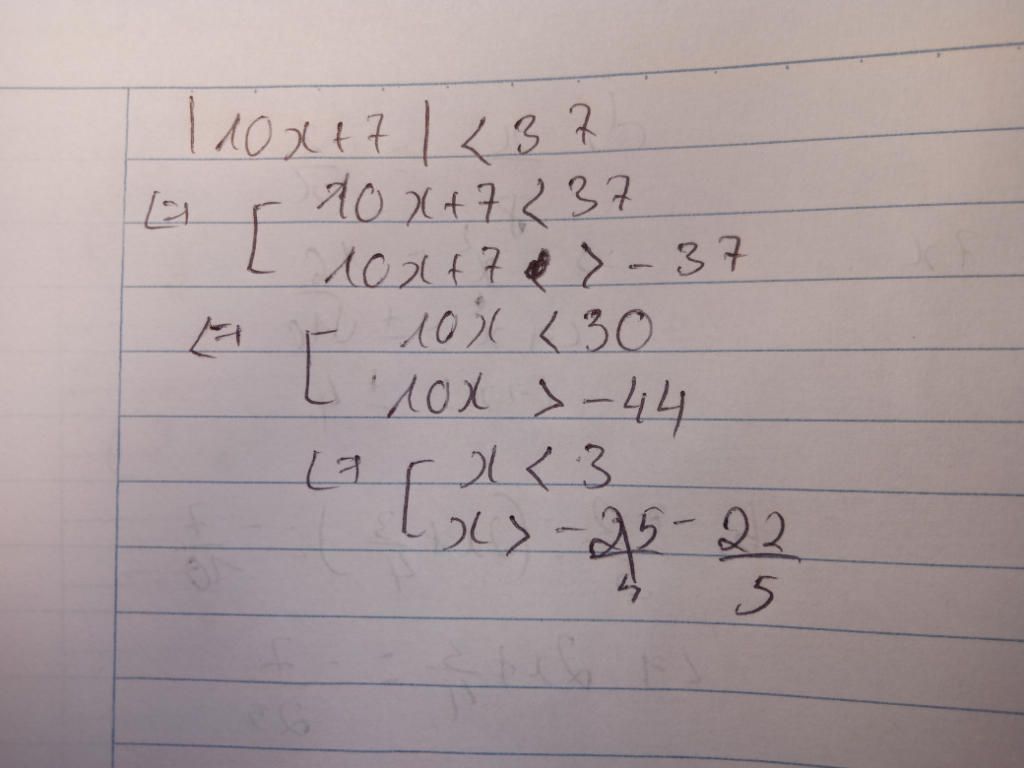 |10x+7| < 37
⇔ [ 10x+7 < 37
10x+7 > -37
⇔ [ 10x < 30
10x > -44
⇔ [ x < 3
x > - 22/5